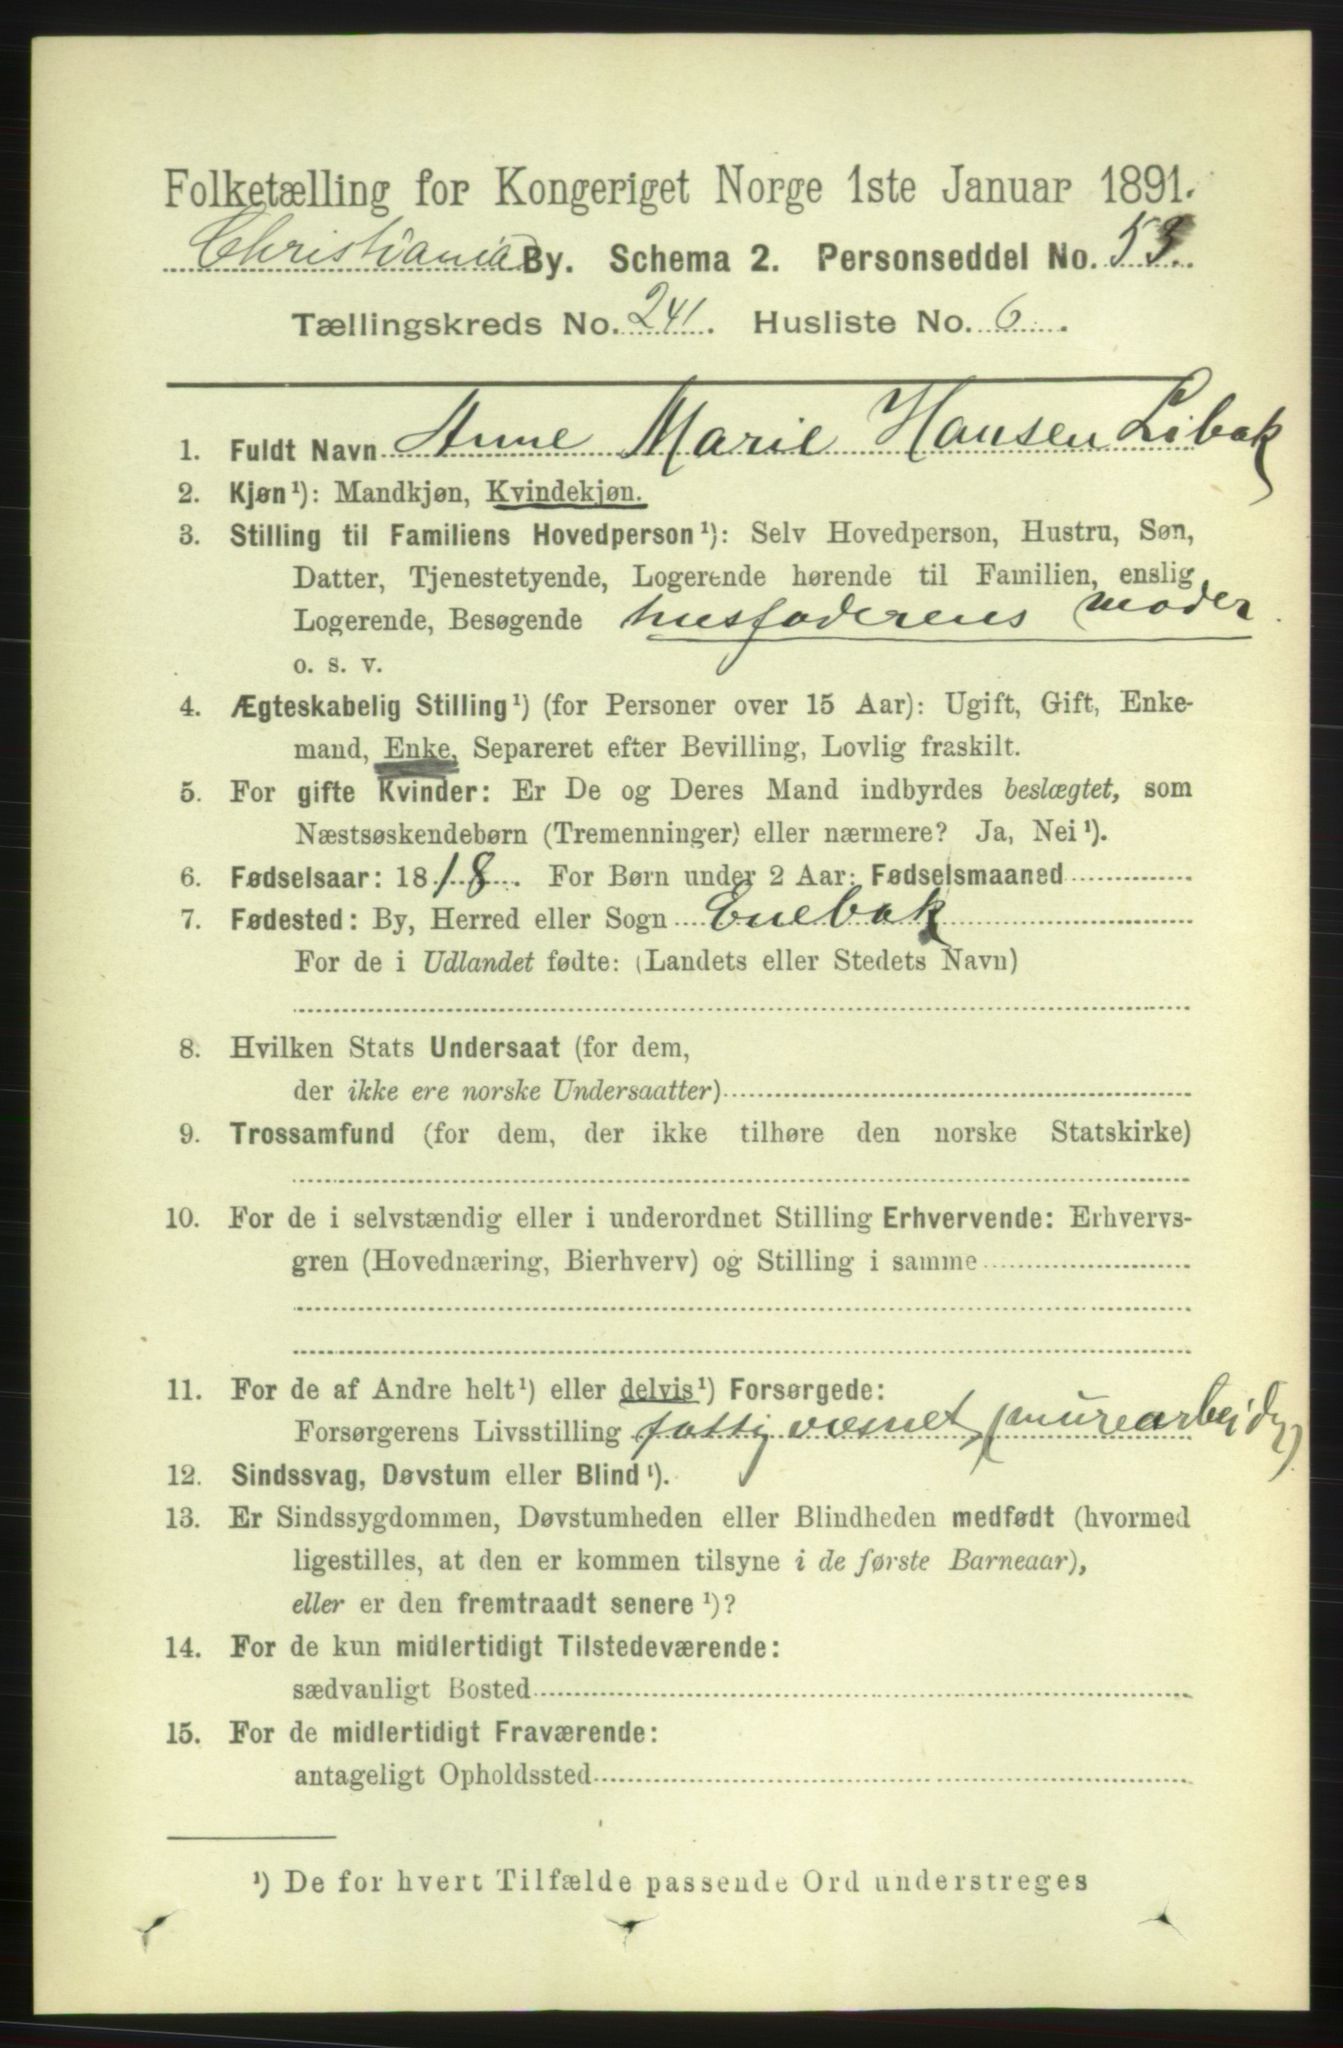 Folketælling for Kongeriget Norge 1ste Januar 1891.
Christiania By. Schema 2. Personseddel No. 53
Tællingskreds No. 241. Husliste No. 6.
1. Fuldt Navn Anne Marie Hansen Libak
2. Kjøn¹): Mandkjøn, Kvindekjøn.
3. Stilling til Familiens Hovedperson¹): Selv Hovedperson, Hustru, Søn,
Datter, Tjenestetyende, Logerende hørende til Familien, enslig
Logerende, Besøgende husfaderens moder
o. s. v.
4. Ægteskabelig Stilling¹) (for Personer over 15 Aar): Ugift, Gift, Enke-
mand, Enke, Separeret efter Bevilling, Lovlig fraskilt.
5. For gifte Kvinder: Er De og Deres Mand indbyrdes beslægtet, som
Næstsøskendebørn (Tremenninger) eller nærmere? Ja, Nei¹).
6. Fødselsaar: 1818. For Børn under 2 Aar: Fødselsmaaned
7. Fødested: By, Herred eller Sogn Enebak
For de i Udlandet fødte: (Landets eller Stedets Navn)
8. Hvilken Stats Undersaat (for dem,
der ikke ere norske Undersaatter)
9. Trossamfund (for dem, der ikke tilhøre den norske Statskirke)
10. For de i selvstændig eller i underordnet Stilling Erhvervende: Erhvervs-
gren (Hovednæring, Bierhverv) og Stilling i samme
11. For de af Andre helt¹) eller delvis¹) Forsørgede:
Forsørgerens Livsstilling fattigvæsnet, murearbeider
12. Sindssvag, Døvstum eller Blind¹).
13. Er Sindssygdommen, Døvstumheden eller Blindheden medfødt (hvormed
ligestilles, at den er kommen tilsyne i de første Barneaar),
eller er den fremtraadt senere¹)?
14. For de kun midlertidigt Tilstedeværende:
sædvanligt Bosted
15. For de midlertidigt Fraværende:
antageligt Opholdssted
¹) De for hvert Tilfælde passende Ord understreges